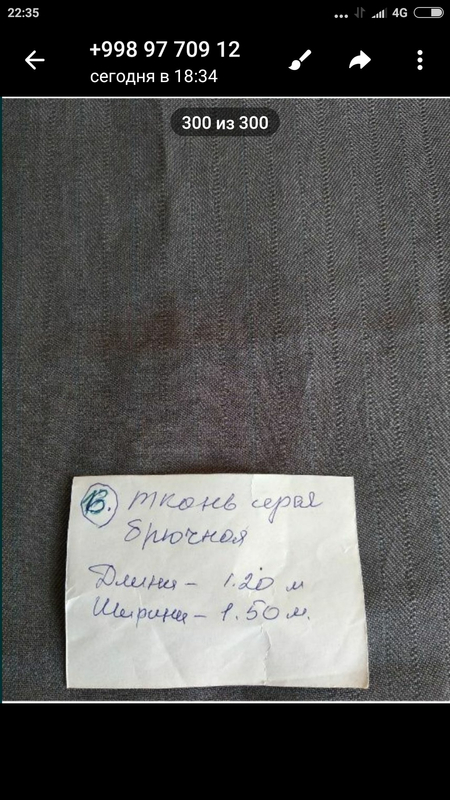 22:35
4G
+998 97 709 12
сегодня в 18:34
300 из 300
13. ткань серая
брючная
Длина - 1.20 м
Ширина - 1.50 м.